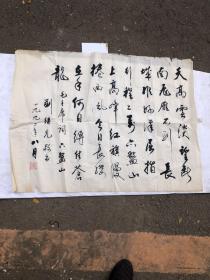 天高雲淡望断
南飛雁不到長
城非好漢屈指
行程二万六盤山
上高峰红旗漫
捲西風今日長纓
在手何時縛住蒼
龍 毛主席词六盤山
一九九二年八月